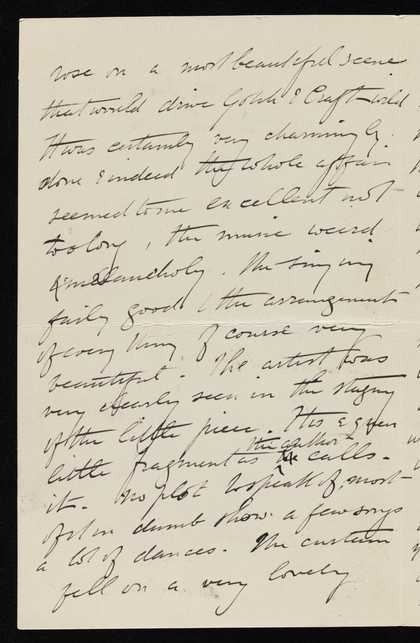 rose on a most beautiful scene
that would drive Gotch & Craft wild
It was certainly very charmingly
done & indeed the whole affair
seemed to me excellent not
too long, the music weird
& melancholy. The singing
fairly good & the arrangement
of every thing of course very
beautiful. The artist was
very clearly seen in the staging
of the little piece. It is a queer
little fragment as the author calls
it. No plot to speak of, most
of it in dumb show. a few songs
a lot of dances. The curtain
fell on a very lovely